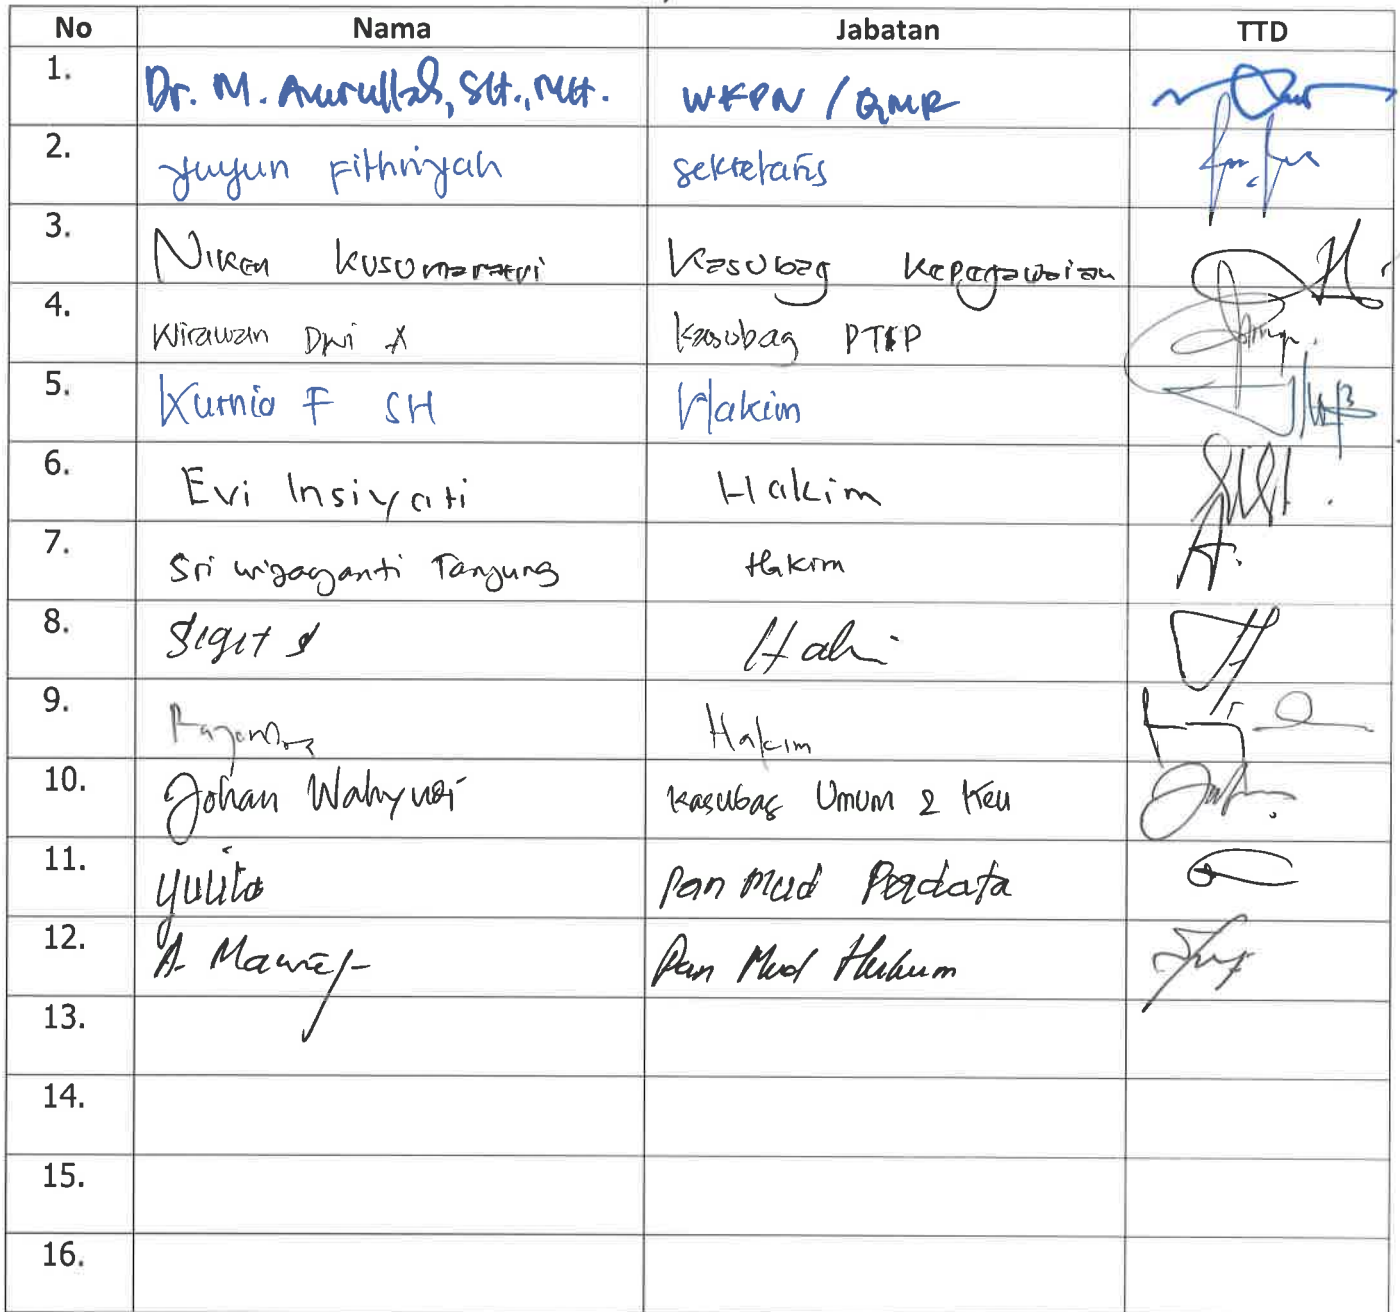 No Nama Jabatan TTD
1. Dr. M. Amrullah, SH., MH. WKPN / QMR
2. Yuyun Fithriyah Sekretaris
3. Niken Kusumaratri Kasubag Kepegawaian
4. Wirawan Dwi A Kasubag PTIP
5. Kurnia F SH Hakim
6. Evi Insiyati Hakim
7. Sri wijayanti Tanjung Hakim
8. Sigit S Hakim
9. Hakim
10. Johan Wahyudi Kasubag Umum & Keu
11. Yulita Pan Mud Perdata
12. A. Pan Mud Hukum
13.
14.
15.
16.